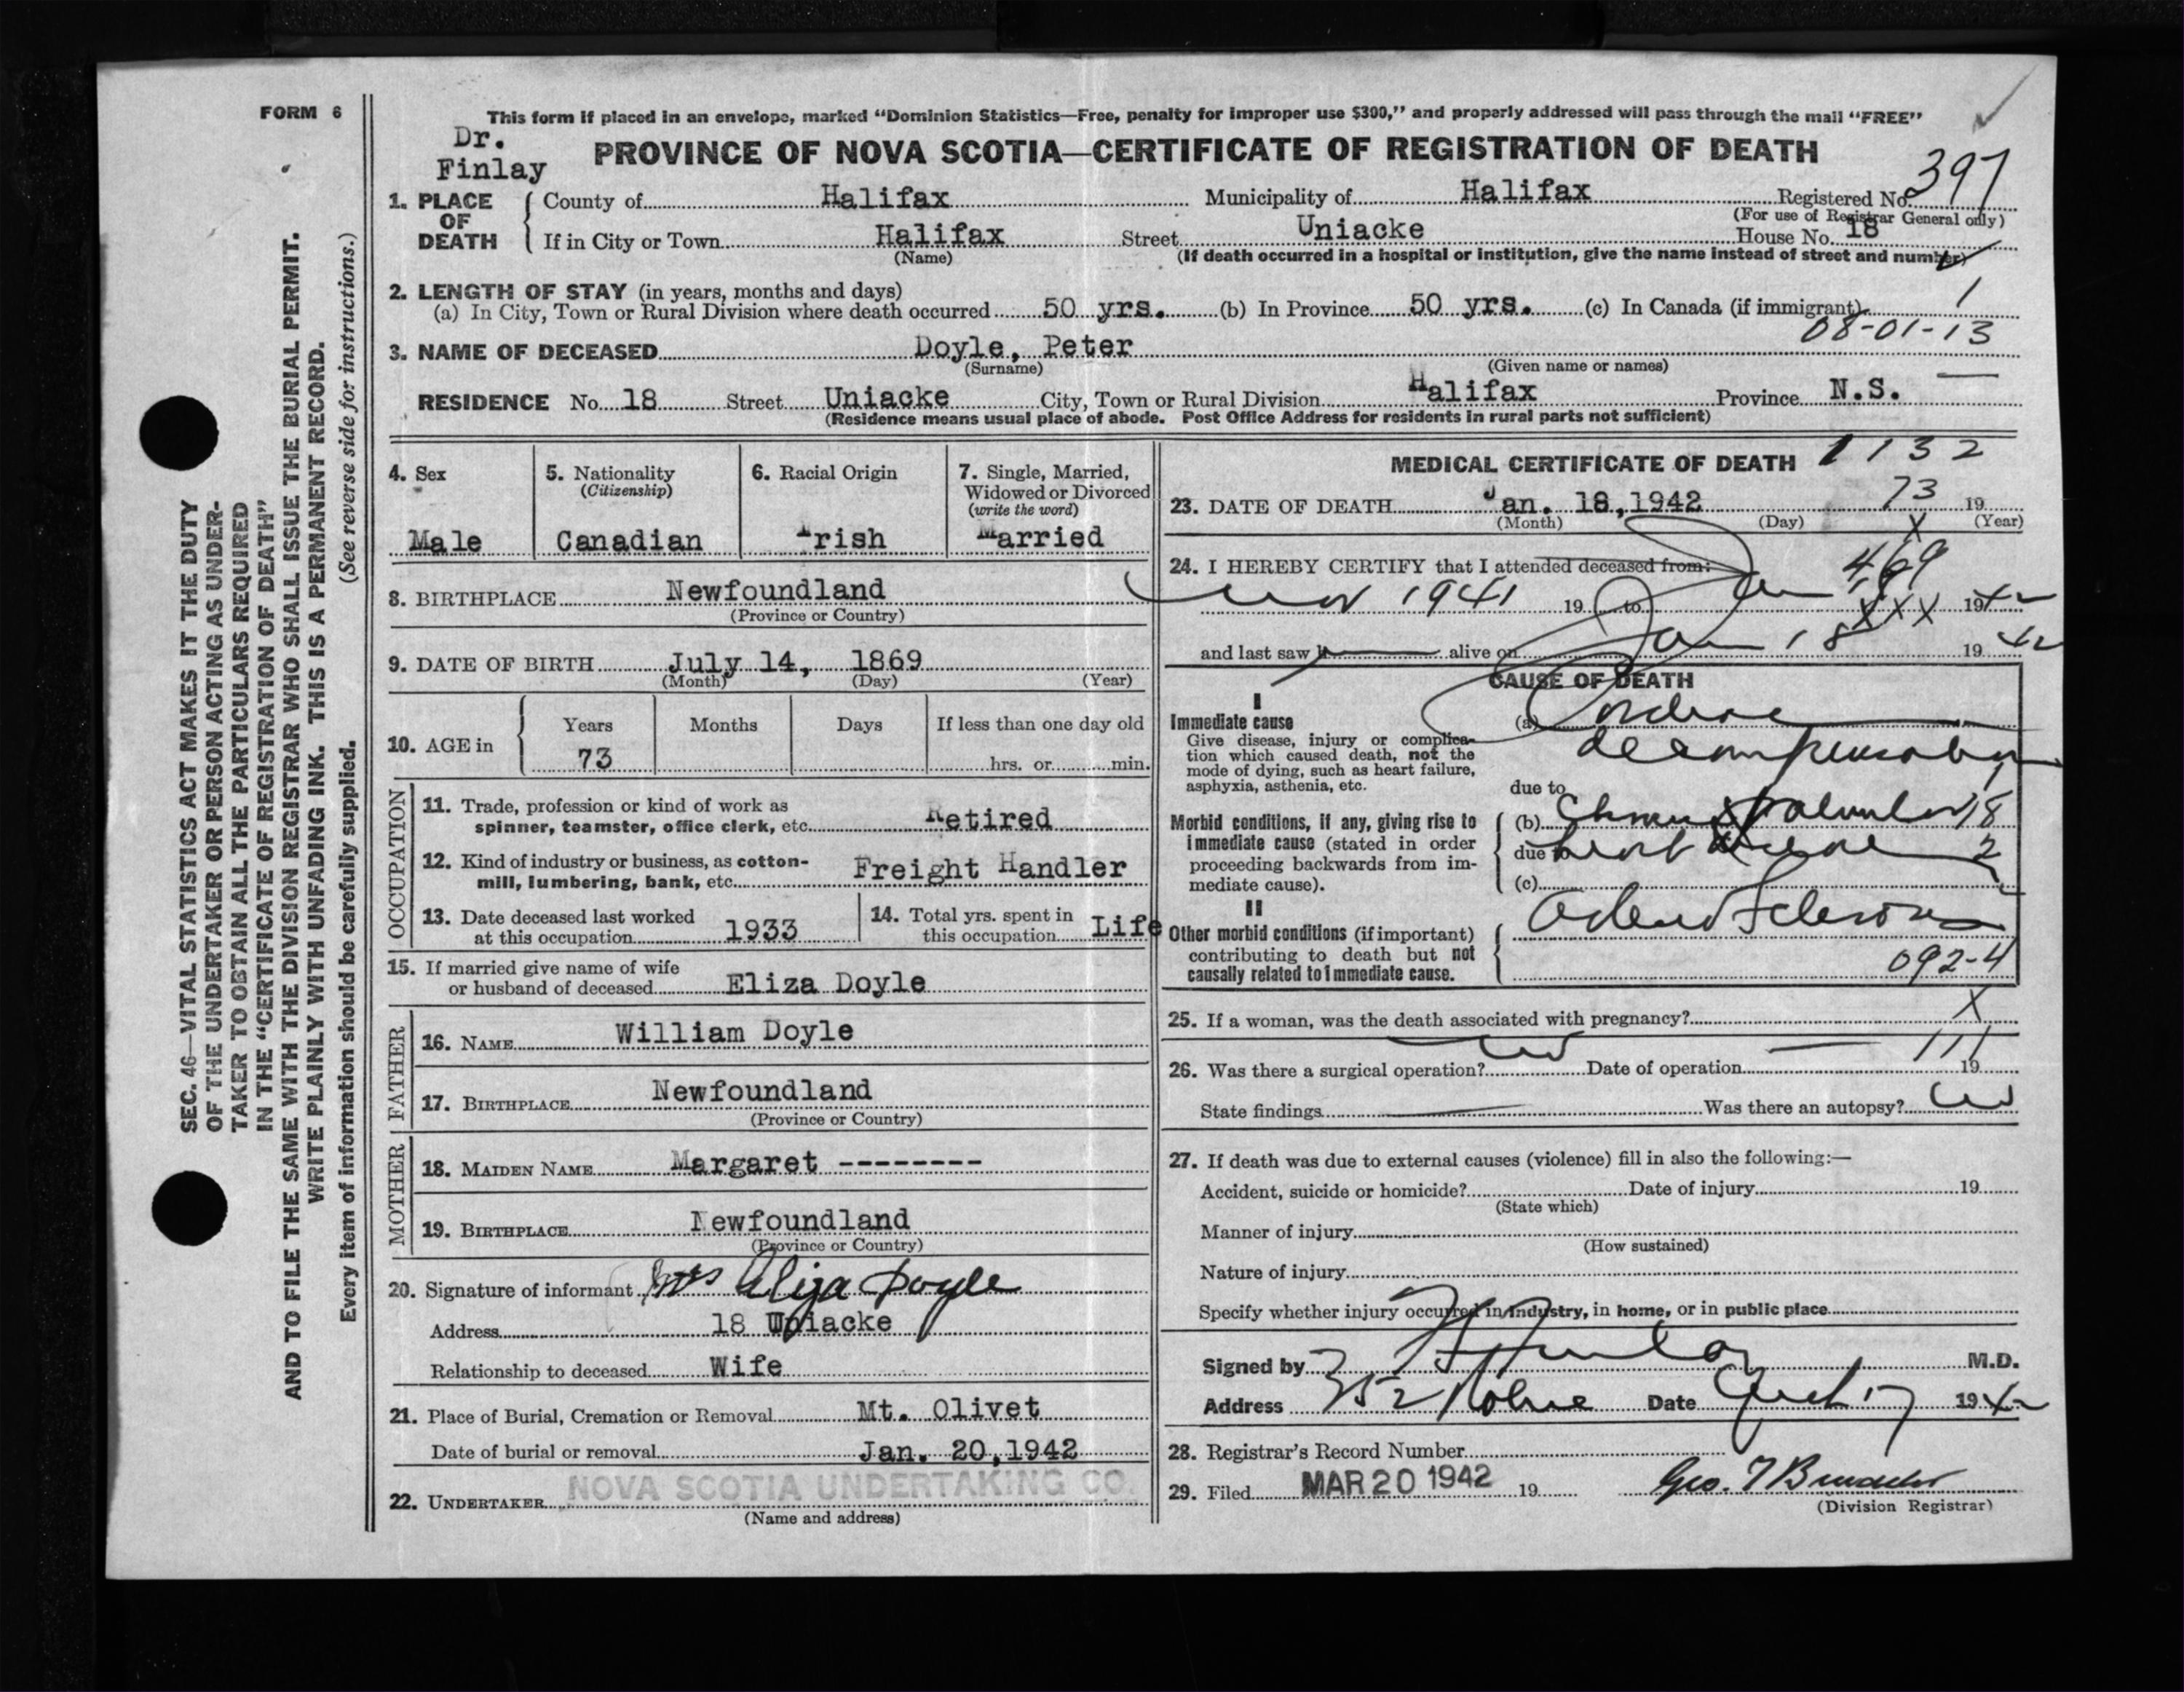 FORM 6
This form if placed in an envelope, marked "Dominion Statistics—Free, penalty for improper use $300," and properly addressed will pass through the mail "FREE"
Dr.
Finlay
PROVINCE OF NOVA SCOTIA—CERTIFICATE OF REGISTRATION OF DEATH
397
1. PLACE OF DEATH County of Halifax Municipality of Halifax Registered No.
(For use of Registrar General only)
If in City or Town Halifax Street Uniacke House No. 18
(Name) (If death occurred in a hospital or institution, give the name instead of street and number)
2. LENGTH OF STAY (in years, months and days)
(a) In City, Town or Rural Division where death occurred 50 yrs. (b) In Province 50 yrs. (c) In Canada (if immigrant) 1
08-01-13
3. NAME OF DECEASED Doyle, Peter
(Surname) (Given name or names)
RESIDENCE No. 18 Street Uniacke City, Town or Rural Division Halifax Province N.S.
(Residence means usual place of abode. Post Office Address for residents in rural parts not sufficient)
4. Sex
Male
5. Nationality
(Citizenship)
Canadian
6. Racial Origin
Irish
7. Single, Married,
Widowed or Divorced
(write the word)
Married
8. BIRTHPLACE Newfoundland
(Province or Country)
9. DATE OF BIRTH July 14, 1869
(Month) (Day) (Year)
10. AGE in Years Months Days If less than one day old
73 hrs. or min.
OCCUPATION
11. Trade, profession or kind of work as
spinner, teamster, office clerk, etc. Retired
12. Kind of industry or business, as cotton-
mill, lumbering, bank, etc. Freight Handler
13. Date deceased last worked
at this occupation 1933
14. Total yrs. spent in
this occupation Life
15. If married give name of wife
or husband of deceased Eliza Doyle
FATHER
16. NAME William Doyle
17. BIRTHPLACE Newfoundland
(Province or Country)
MOTHER
18. MAIDEN NAME Margaret --------
19. BIRTHPLACE Newfoundland
(Province or Country)
20. Signature of informant Mrs Eliza Doyle
Address 18 Uniacke
Relationship to deceased Wife
21. Place of Burial, Cremation or Removal Mt. Olivet
Date of burial or removal Jan. 20, 1942
22. UNDERTAKER NOVA SCOTIA UNDERTAKING CO.
(Name and address)
MEDICAL CERTIFICATE OF DEATH 1132
23. DATE OF DEATH Jan. 18, 1942 73 19
(Month) (Day) X (Year)
24. I HEREBY CERTIFY that I attended deceased from: 469
Nov 1941 19 to Jan XXX 1942
and last saw h alive on Jan 18 1942
CAUSE OF DEATH
I
Immediate cause (a) Cardiac
Give disease, injury or complica-
tion which caused death, not the
mode of dying, such as heart failure,
asphyxia, asthenia, etc.
decompensation
due to
Morbid conditions, if any, giving rise to
immediate cause (stated in order
proceeding backwards from im-
mediate cause).
(b) Chronic Valvular 18
due to heart disease 2
(c)
II
Other morbid conditions (if important)
contributing to death but not
causally related to immediate cause.
Arteriosclerosis
092-4
25. If a woman, was the death associated with pregnancy? X
26. Was there a surgical operation? no Date of operation 111 19
State findings Was there an autopsy? no
27. If death was due to external causes (violence) fill in also the following:—
Accident, suicide or homicide? Date of injury 19
(State which)
Manner of injury
(How sustained)
Nature of injury
Specify whether injury occurred in industry, in home, or in public place
Signed by Finlay M.D.
Address 352 Date 17 1942
28. Registrar's Record Number
29. Filed MAR 20 1942 19 Geo. F
(Division Registrar)
SEC. 46—VITAL STATISTICS ACT MAKES IT THE DUTY
OF THE UNDERTAKER OR PERSON ACTING AS UNDER-
TAKER TO OBTAIN ALL THE PARTICULARS REQUIRED
IN THE "CERTIFICATE OF REGISTRATION OF DEATH"
AND TO FILE THE SAME WITH THE DIVISION REGISTRAR WHO SHALL ISSUE THE BURIAL PERMIT.
WRITE PLAINLY WITH UNFADING INK. THIS IS A PERMANENT RECORD.
Every item of information should be carefully supplied. (See reverse side for instructions.)